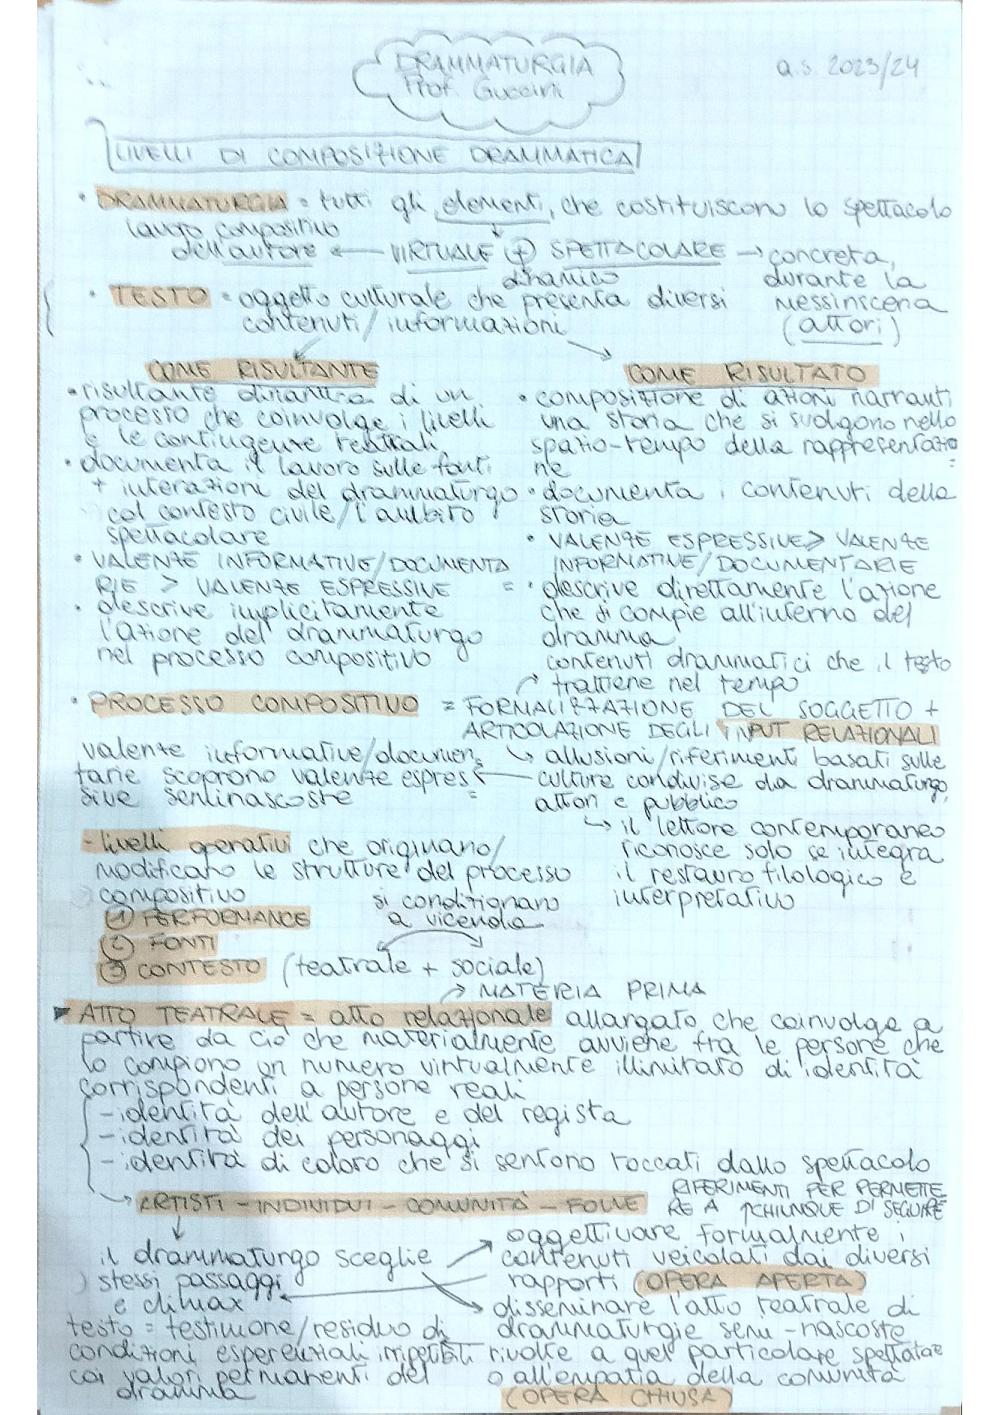 DRAMMATURGIA
Prof. Guccini
a.s. 2023/24
LIVELLI DI COMPOSIZIONE DRAMMATICA
• DRAMMATURGIA = tutti gli elementi, che costituiscono lo spettacolo
lavoro compositivo
dell'autore ← VIRTUALE + SPETTACOLARE → concreta,
dinamico
durante la
messinscena
(attori)
• TESTO = oggetto culturale che presenta diversi
contenuti/informazioni
COME RISULTANTE
• risultante dinamica di un
processo che coinvolge i livelli
e le contingenze teatrali
• documenta il lavoro sulle fonti
+ interazioni del drammaturgo
col contesto civile/l'ambito
spettacolare
• VALENZE INFORMATIVE/DOCUMENTA
RIE > VALENZE ESPRESSIVE
• descrive implicitamente
l'azione del drammaturgo
nel processo compositivo
COME RISULTATO
• composizione di azioni narranti
una storia che si svolgono nello
spazio-tempo della rappresentazio
ne
• documenta i contenuti della
storia
• VALENZE ESPRESSIVE > VALENZE
INFORMATIVE/DOCUMENTARIE
• descrive direttamente l'azione
che si compie all'interno del
dramma
contenuti drammatici che il testo
trattiene nel tempo
• PROCESSO COMPOSITIVO = FORMALIZZAZIONE DEL SOGGETTO +
ARTICOLAZIONE DEGLI INPUT RELAZIONALI
valenze informative/documen
tarie scoprono valenze espres
sive seminascoste
↳ allusioni/riferimenti basati sulle
culture condivise da drammaturgo,
attori e pubblico
↳ il lettore contemporaneo
riconosce solo se integra
il restauro filologico e
interpretativo
- livelli operativi che originano/
modificano le strutture del processo
compositivo
① PERFORMANCE
② FONTI
③ CONTESTO (teatrale + sociale)
si condizionano
a vicenda
→ MATERIA PRIMA
► ATTO TEATRALE = atto relazionale allargato che coinvolge a
partire da ciò che materialmente avviene fra le persone che
lo compiono un numero virtualmente illimitato di identità
corrispondenti a persone reali
- identità dell'autore e del regista
- identità dei personaggi
- identità di coloro che si sentono toccati dallo spettacolo
→ ARTISTI - INDIVIDUI - COMUNITÀ - FOLLE
RIFERIMENTI PER PERMETTE
RE A CHIUNQUE DI SEGUIRE
il drammaturgo sceglie
stessi passaggi
e climax
oggettivare formalmente i
contenuti veicolati dai diversi
rapporti (OPERA APERTA)
disseminare l'atto teatrale di
drammaturgie semi-nascoste
rivolte a quel particolare spettatore
o all'empatia della comunità
(OPERA CHIUSA)
testo = testimone/residuo di
condizioni esperenziali irripetibili
coi valori permanenti del
dramma